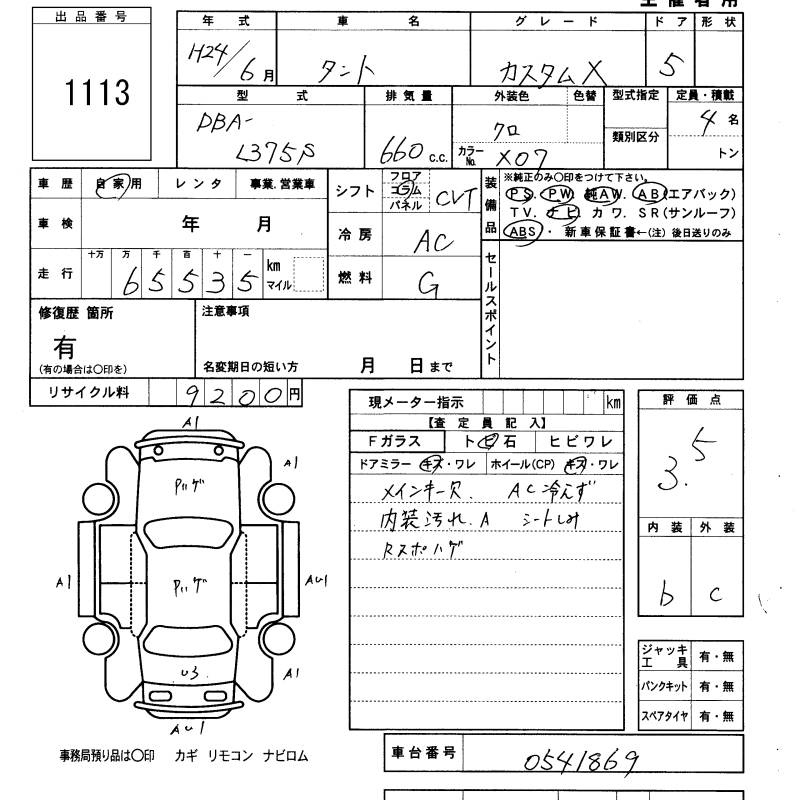 主催者用
出品番号
1113
年式 車名 グレード ドア 形状
H24/6月 タント カスタムX 5
型式 排気量 外装色 色替 型式指定 定員・積載
DBA-
L375S 660 c.c. クロ
カラーNo. X07 類別区分 4名
トン
車歴 自家用 レンタ 事業.営業車
車検 年 月
走行 十万 万 千 百 十 一
65535 km
マイル
シフト フロア コラム パネル CVT
冷房 AC
燃料 G
装備品
※純正のみ○印をつけて下さい。
PS. PW 純AW. AB(エアバック)
TV. ナビ カワ. SR(サンルーフ)
ABS・新車保証書←(注) 後日送りのみ
セールスポイント
修復歴 箇所
有
(有の場合は○印を)
注意事項
名変期日の短い方 月 日まで
リサイクル料 9200円
現メーター指示 km
【査定員記入】
Fガラス トビ石 ヒビワレ
ドアミラー キズ・ワレ ホイール(CP) キズ・ワレ
メインキー欠. AC冷えず
内装汚れ.A シートしみ
Rスポハゲ
評価点
3.5
内装 外装
b c
A1
A1
ハゲ
A1 ハゲ AU1
U3 A1
AU1
ジャッキ工具 有・無
パンクキット 有・無
スペアタイヤ 有・無
事務局預り品は○印 カギ リモコン ナビロム
車台番号 0541869